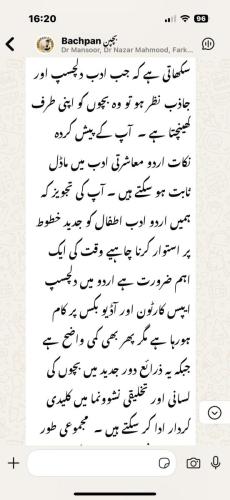 16:20
96
Bachpan بچپن
Dr Mansoor, Dr Nazar Mahmood, Fark...
سکھاتی ہے کہ جب ادب دلچسپ اور
جاذب نظر ہو تو وہ بچوں کو اپنی طرف
کھینچتا ہے ۔ آپ کے پیش کردہ
نکات اردو معاشرتی ادب میں ماڈل
ثابت ہو سکتے ہیں ۔ آپ کی تجویز کہ
ہمیں اردو ادب اطفال کو جدید خطوط
پر استوار کرنا چاہیے وقت کی ایک
اہم ضرورت ہے اردو میں دلچسپ
ایپس کارٹون اور آڈیو بکس پر کام
ہورہا ہے مگر پھر بھی کمی واضح ہے
جبکہ یہ ذرائع دور جدید میں بچوں کی
لسانی اور تخلیقی نشوونما میں کلیدی
کردار ادا کر سکتے ہیں ۔ مجموعی طور